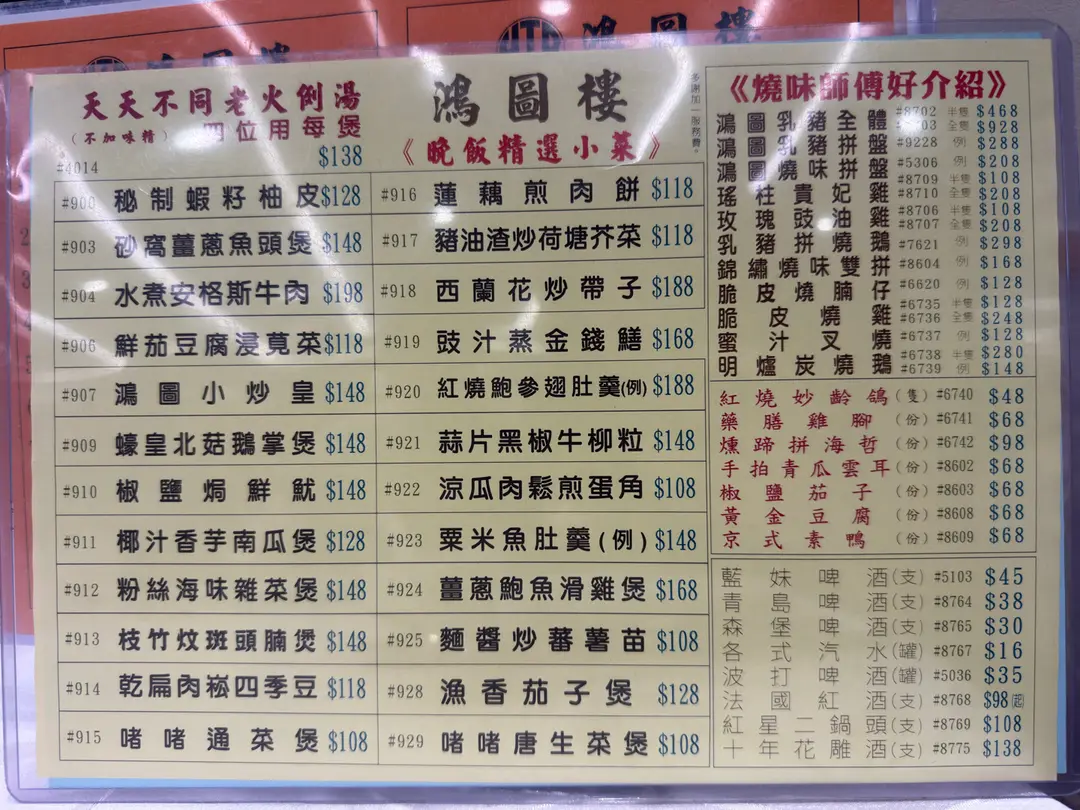 鴻圖樓
HTR 鴻圖樓
天天不同老火例湯
(不加味精) 四位用每煲
#4014 $138
鴻圖樓
《晚飯精選小菜》
多謝加一服務費。
#900 秘制蝦籽柚皮 $128
#903 砂窩薑蔥魚頭煲 $148
#904 水煮安格斯牛肉 $198
#906 鮮茄豆腐浸莧菜 $118
#907 鴻圖小炒皇 $148
#909 蠔皇北菇鵝掌煲 $148
#910 椒鹽焗鮮魷 $148
#911 椰汁香芋南瓜煲 $128
#912 粉絲海味雜菜煲 $148
#913 枝竹炆斑頭腩煲 $148
#914 乾扁肉崧四季豆 $118
#915 啫啫通菜煲 $108
#916 蓮藕煎肉餅 $118
#917 豬油渣炒荷塘芥菜 $118
#918 西蘭花炒帶子 $188
#919 豉汁蒸金錢鱔 $168
#920 紅燒鮑參翅肚羹(例) $188
#921 蒜片黑椒牛柳粒 $148
#922 涼瓜肉鬆煎蛋角 $108
#923 粟米魚肚羹(例) $148
#924 薑蔥鮑魚滑雞煲 $168
#925 麵醬炒蕃薯苗 $108
#928 漁香茄子煲 $128
#929 啫啫唐生菜煲 $108
《燒味師傅好介紹》
鴻圖乳豬全體 #8702 半隻 $468
全隻 $928
鴻圖乳豬拼盤 #9228 例 $288
鴻圖燒味拼盤 #5306 例 $208
瑤柱貴妃雞 #8709 半隻 $108
#8710 全隻 $208
玫瑰豉油雞 #8706 半隻 $108
#8707 全隻 $208
乳豬拼燒鵝 #7621 例 $298
錦繡燒味雙拼 #8604 例 $168
脆皮燒腩仔 #6620 例 $128
脆皮燒雞 #6735 半隻 $128
#6736 全隻 $248
蜜汁叉燒 #6737 例 $128
明爐炭燒鵝 #6738 半隻 $280
#6739 例 $148
紅燒妙齡鴿(隻) #6740 $48
藥膳雞腳(份) #6741 $68
燻蹄拼海哲(份) #6742 $98
手拍青瓜雲耳(份) #8602 $68
椒鹽茄子(份) #8603 $68
黃金豆腐(份) #8608 $68
京式素鴨(份) #8609 $68
藍妹啤酒(支) #5103 $45
青島啤酒(支) #8764 $38
森堡啤酒(支) #8765 $30
各式汽水(罐) #8767 $16
波打啤酒(罐) #5036 $35
法國紅酒(支) #8768 $98起
紅星二鍋頭(支) #8769 $108
十年花雕酒(支) #8775 $138